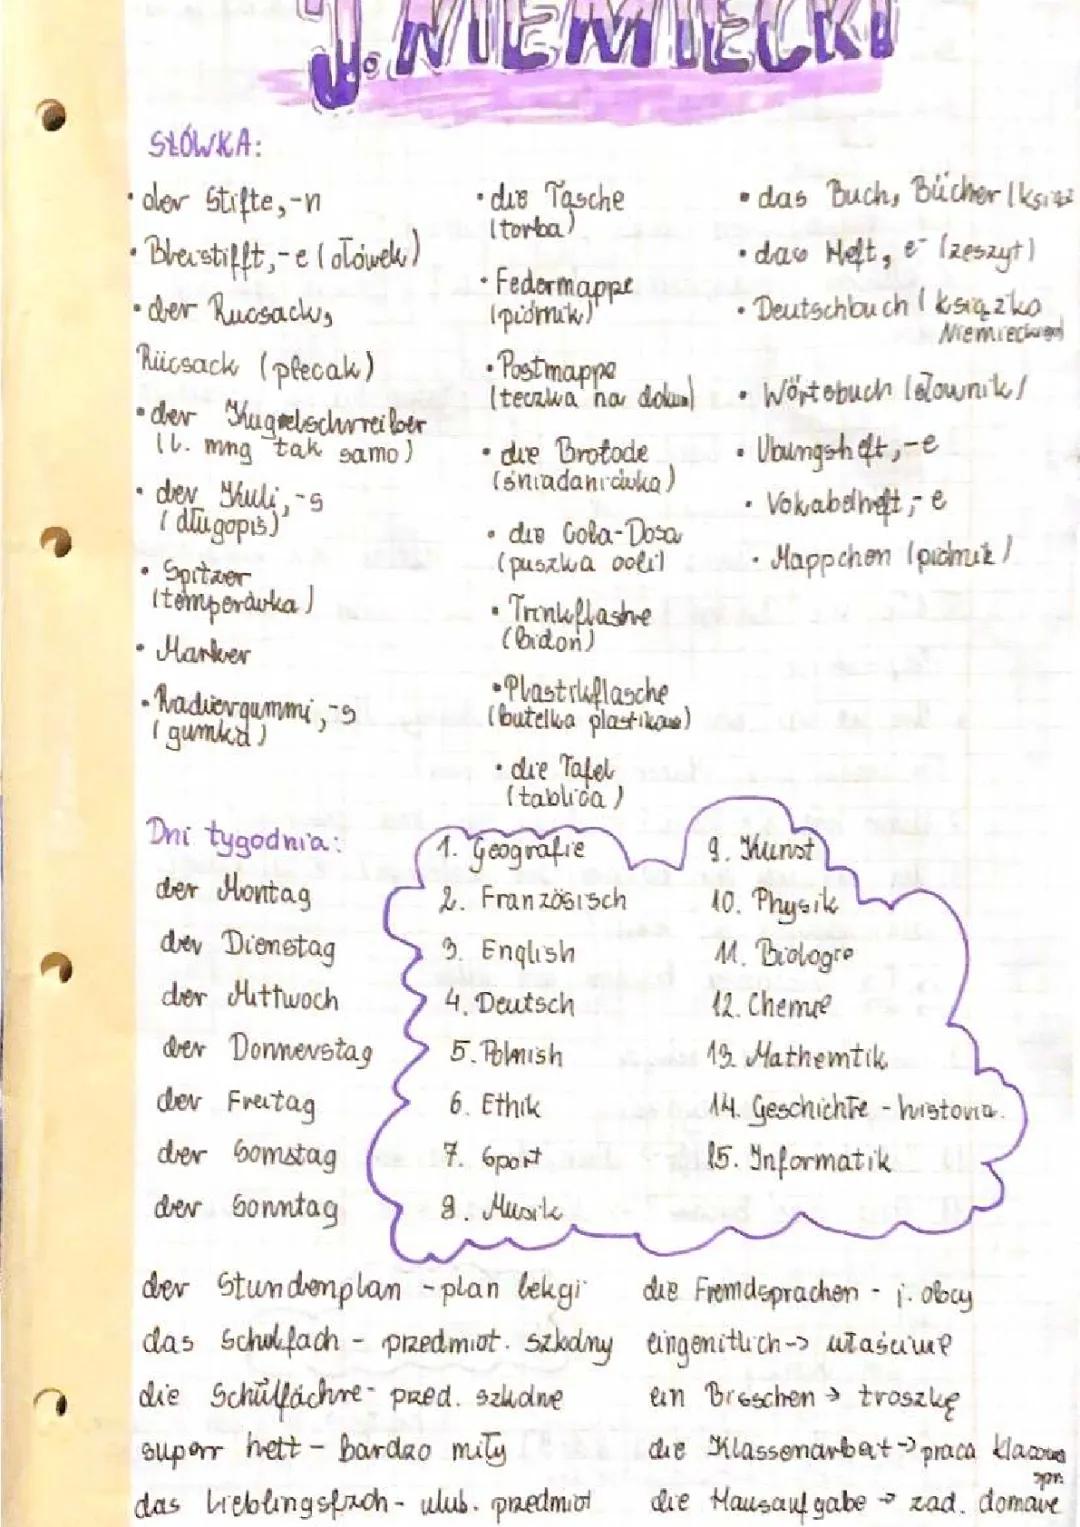 J. NIEMIECKI
SŁÓWKA:
• der Stifte,-n
• Bleistifft,-e (ołówek)
• der Rucsack,
Rücsack (plecak)
• der Kugelschreiber
(l. mng tak samo)
• der Kuli,-s
(długopis)
• Spitzer
(temperówka)
• Marker
• Radiergummi,-s
(gumka)
• die Tasche
(torba)
• Federmappe
(piórnik)
• Postmappe
(teczka na dokum)
• die Brotode
(śniadaniówka)
• die Cola-Dosa
(puszka coli)
• Trinkflashe
(bidon)
• Plastikflasche
(butelka plastikow)
• die Tafel
(tablica)
• das Buch, Bücher (ksiąz
• das Heft, e- (zeszyt)
• Deutschbuch (książka
Niemieckiego
• Wörtebuch (słownik)
• Ubungsheft,-e
• Vokabelheft,-e
• Mappchen (piórnik)
Dni tygodnia:
der Montag
der Dienstag
der Mittwoch
der Donnerstag
der Freitag
der Somstag
der Sonntag
1. Geografie
2. Französisch
3. English
4. Deutsch
5. Polnish
6. Ethik
7. Sport
8. Musik
9. Kunst
10. Physik
11. Biologie
12. Chemie
13. Mathemtik
14. Geschichte - historia.
15. Informatik
der Stundenplan - plan lekcji
das Schulfach - przedmiot. szkolny
die Schülfächre - przed. szkolne
superr nett - bardzo miły
das Lieblingsfach - ulub. przedmiot
die Fremdsprachen - j. obcy
eingenitlich -> właściwie
ein Bisschen -> troszkę
die Klassenarbeit -> praca klasowa
spr.
die Hausaufgabe -> zad. domowe